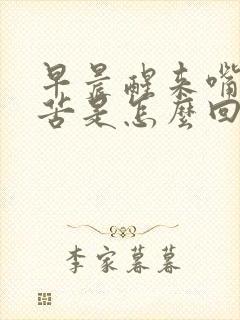 早晨醒来嘴
苦是怎麼回
李家暮暮